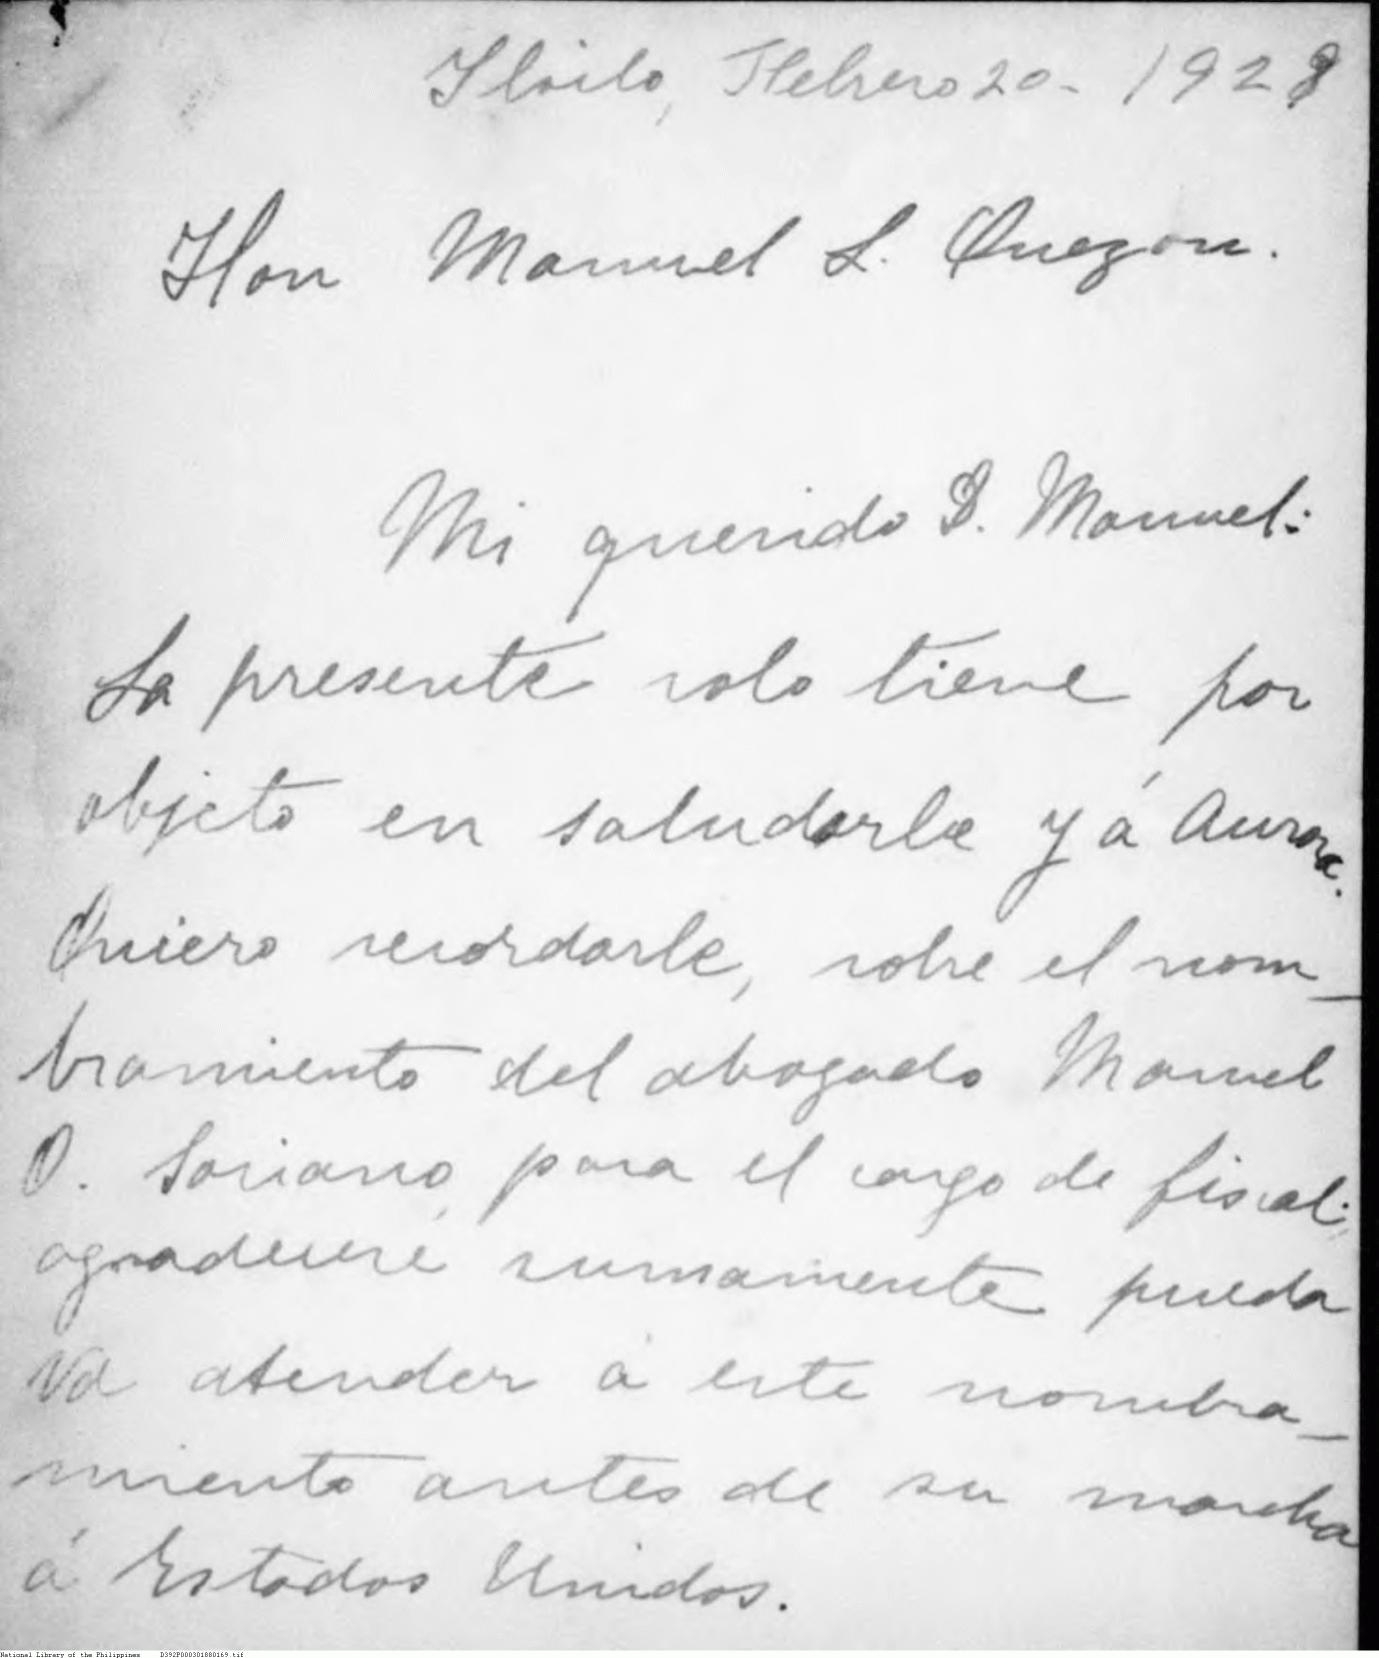 Iloilo, Febrero 20 - 1928
Hon Manuel L. Quezon.
Mi querido D. Manuel:
La presente solo tiene por
objeto en saludarle y á Aurora.
Quiero recordarle, sobre el nom_
bramiento del abogado Manuel
O. Soriano, para el cargo de fiscal;
agradeceré sumamente pueda
Vd atender á este nombra_
miento antes de su marcha
á Estados Unidos.
National Library of the Philippines D392P000301880169.tif